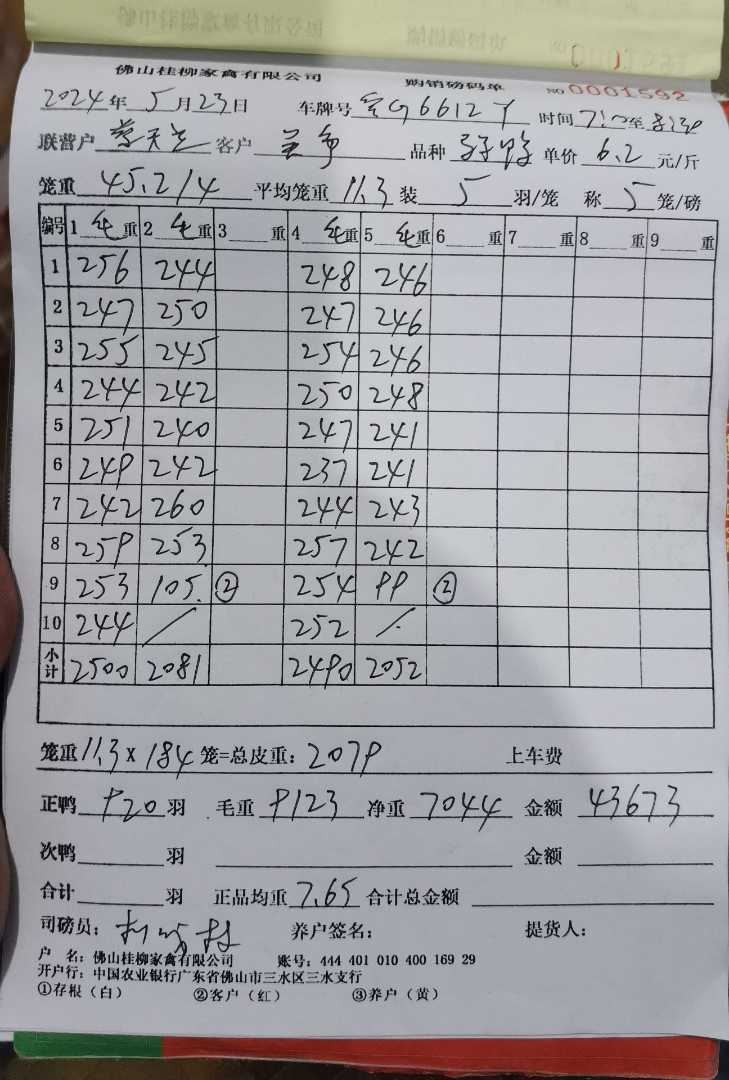 佛山桂柳家禽有限公司 购销磅码单 NO 0001592
2024年 5月23日 车牌号 G6612Y 时间 7:~至
联营户 客户 品种 单价 6.2 元/斤
笼重 45.2/4 平均笼重 11.3 装 5 羽/笼 称 5 笼/磅
编号 1 毛重 2 毛重 3 重 4 毛重 5 毛重 6 重 7 重 8 重 9 重
1 256 244 248 246
2 247 250 247 246
3 255 245 254 246
4 244 242 250 248
5 251 240 247 241
6 249 242 237 241
7 242 260 244 243
8 259 253 257 242
9 253 105. ② 254 99 ②
10 244 / 252 /
小计 2500 2081 2490 2052
笼重 11.3 x 184 笼=总皮重: 2079 上车费
正鸭 920 羽 毛重 9123 净重 7044 金额 43673
次鸭 羽 金额
合计 羽 正品均重 7.65 合计总金额
司磅员: 养户签名: 提货人:
户 名: 佛山桂柳家禽有限公司 账号: 444 401 010 400 169 29
开户行: 中国农业银行广东省佛山市三水区三水支行
①存根（白） ②客户（红） ③养户（黄）